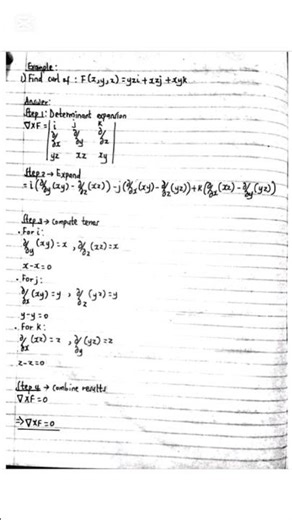 Example:
1) Find curl of : F(x,y,z) = yzi + xzj + xyk
Answer:
Step 1: Determinant expansion
∇XF = | i j k |
| ∂/∂x ∂/∂y ∂/∂z |
| yz xz xy |
Step 2 → Expand
= i(∂/∂y(xy) - ∂/∂z(xz)) - j(∂/∂x(xy) - ∂/∂z(yz)) + k(∂/∂x(xz) - ∂/∂y(yz))
Step 3 → compute terms
• For i:
∂/∂y (xy) = x , ∂/∂z (xz) = x
x - x = 0
• For j:
∂/∂x (xy) = y , ∂/∂z (yz) = y
y - y = 0
• For k:
∂/∂x (xz) = z , ∂/∂y (yz) = z
z - z = 0
Step 4 → combine results
∇XF = 0
⇒ ∇XF = 0